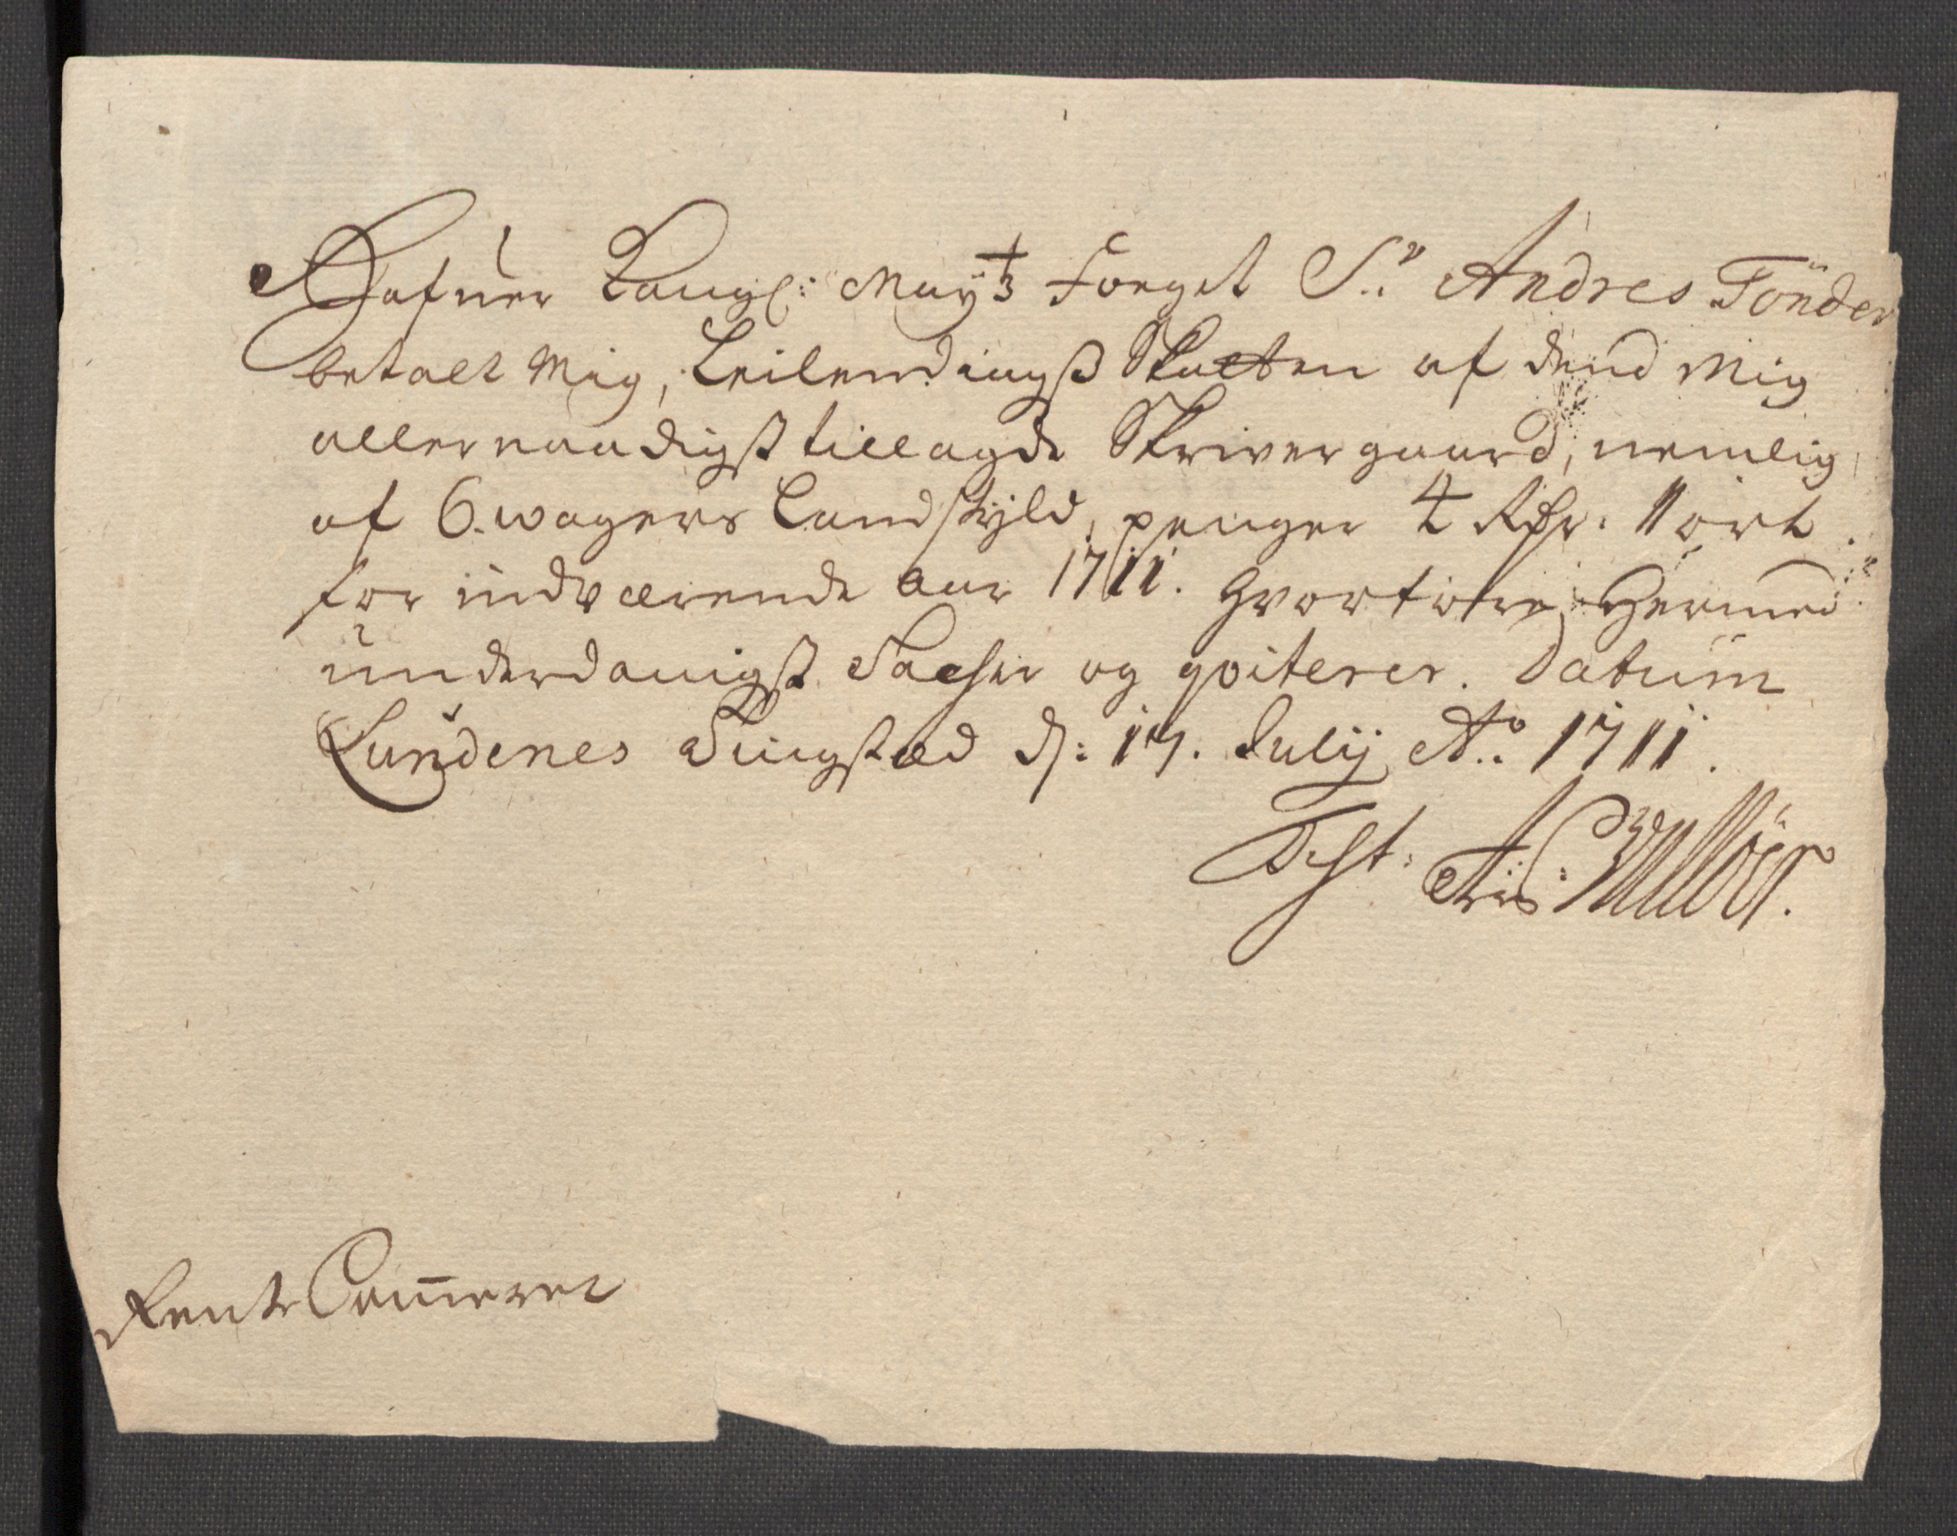 Hafuer Kongl: May:ts Foeget Sr. Andres Tönder
betalt Mig, Leilendingß Skatten af dend Mig
allernaadigst tillagde Skrivergaard, nemlig
af 6. wogers Landskyld, penger 4 Rdr: 1 ort
for indværende Aar 1711. Hvorfore Hermed
underdanigst og qviterer. Datum
Lundenes Tingsted d: 17. Julij Ao. 1711.
Rente Cammeret